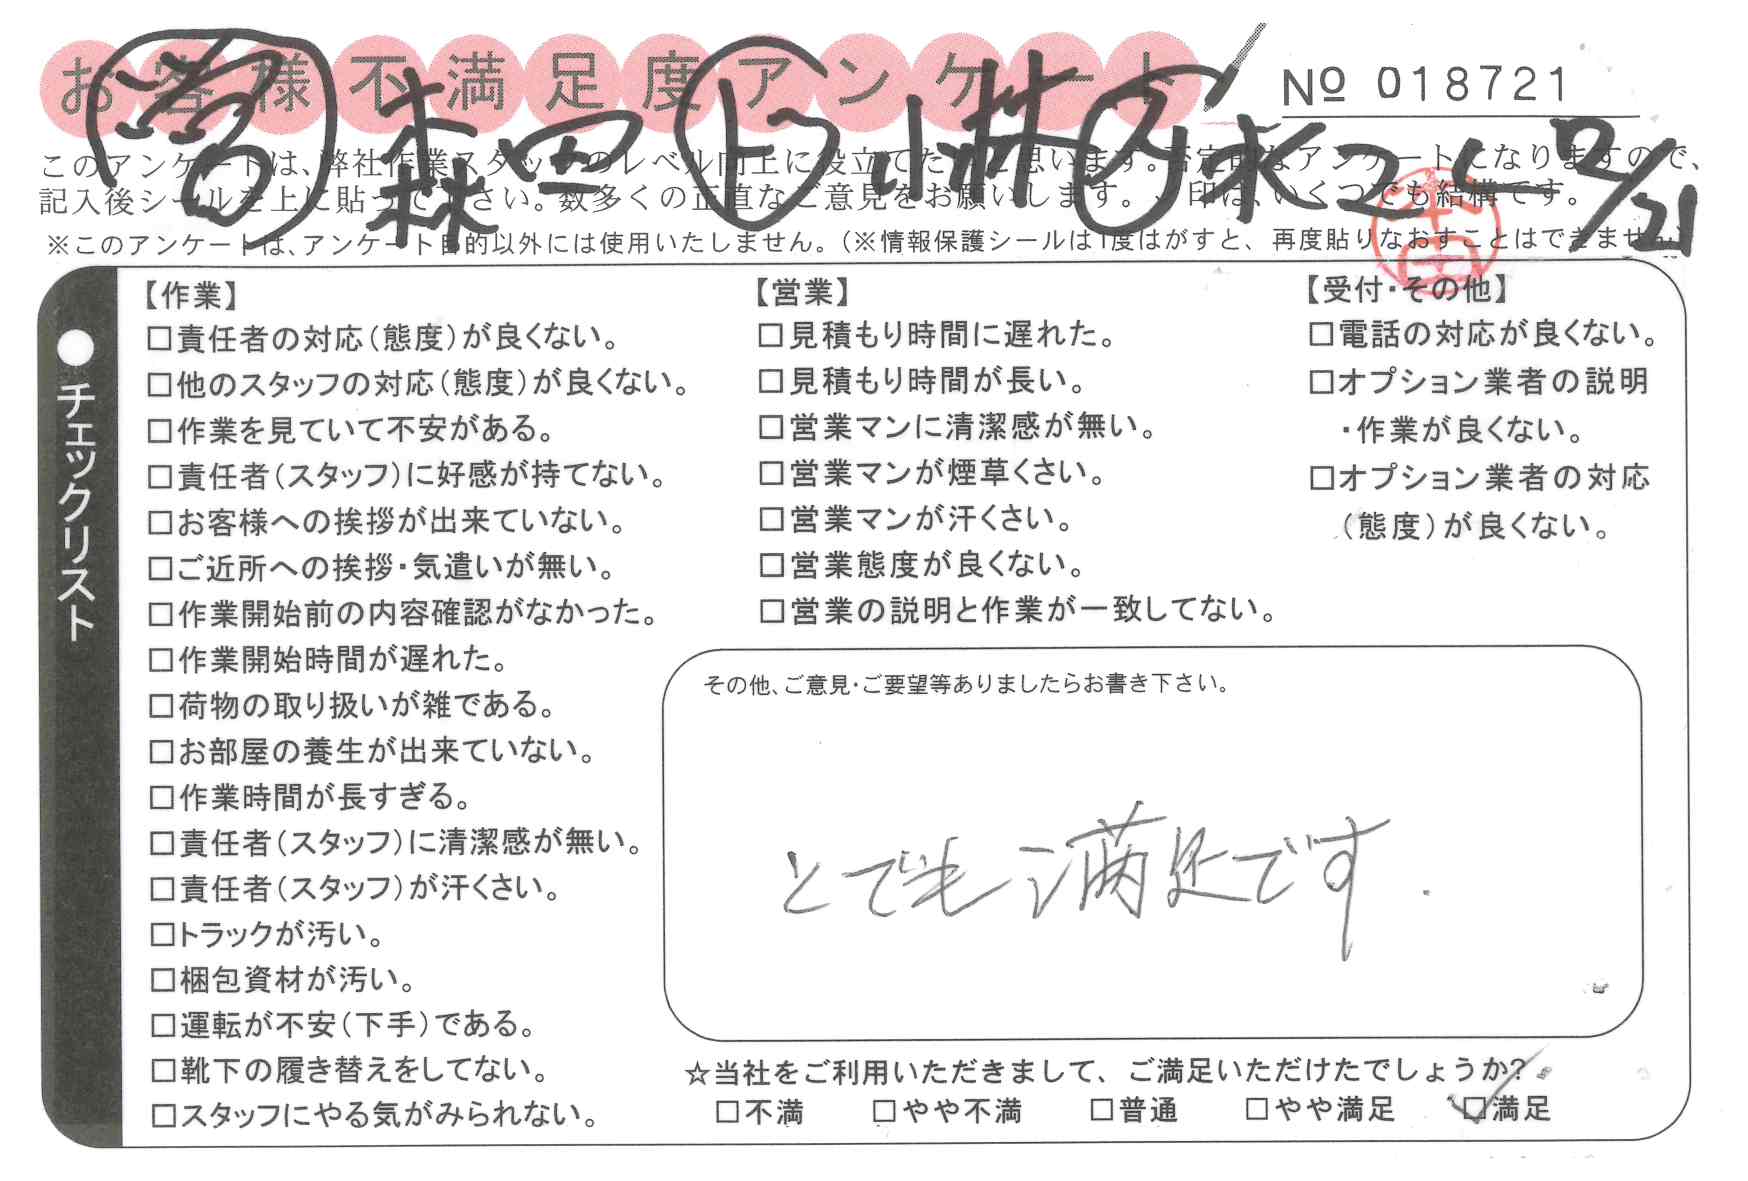 お客様不満足度アンケート
№ 018721
営 森田 ト 小林 水 12/21
このアンケートは、弊社作業スタッフのレベル向上に役立てたいと思います。否定的なアンケートになりますので、
記入後シールを上に貼って下さい。数多くの正直なご意見をお願いします。✓印は、いくつでも結構です。
※このアンケートは、アンケート目的以外には使用いたしません。(※情報保護シールは1度はがすと、再度貼りなおすことはできません)
●チェックリスト
【作業】
□責任者の対応(態度)が良くない。
□他のスタッフの対応(態度)が良くない。
□作業を見ていて不安がある。
□責任者(スタッフ)に好感が持てない。
□お客様への挨拶が出来ていない。
□ご近所への挨拶・気遣いが無い。
□作業開始前の内容確認がなかった。
□作業開始時間が遅れた。
□荷物の取り扱いが雑である。
□お部屋の養生が出来ていない。
□作業時間が長すぎる。
□責任者(スタッフ)に清潔感が無い。
□責任者(スタッフ)が汗くさい。
□トラックが汚い。
□梱包資材が汚い。
□運転が不安(下手)である。
□靴下の履き替えをしてない。
□スタッフにやる気がみられない。
【営業】
□見積もり時間に遅れた。
□見積もり時間が長い。
□営業マンに清潔感が無い。
□営業マンが煙草くさい。
□営業マンが汗くさい。
□営業態度が良くない。
□営業の説明と作業が一致してない。
【受付・その他】
□電話の対応が良くない。
□オプション業者の説明
・作業が良くない。
□オプション業者の対応
(態度)が良くない。
その他、ご意見・ご要望等ありましたらお書き下さい。
とても満足です.
☆当社をご利用いただきまして、ご満足いただけたでしょうか?
□不満 □やや不満 □普通 □やや満足 ☑満足